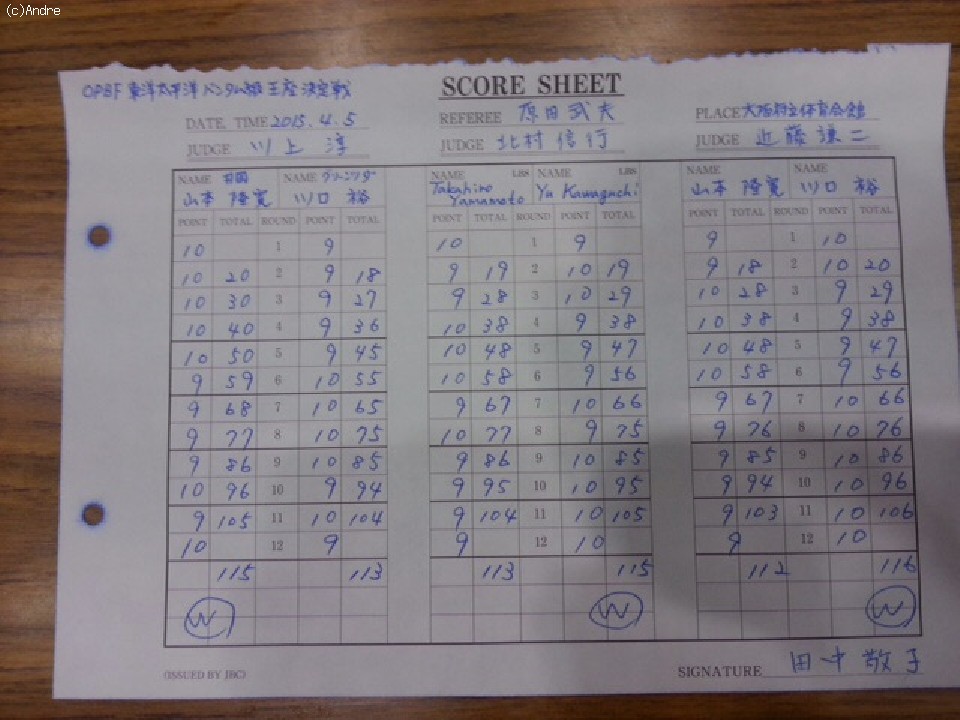 (c)Andre
OPBF 東洋太平洋バンタム級王座決定戦
SCORE SHEET
DATE, TIME 2015.4.5 REFEREE 原田武夫 PLACE 大阪府立体育会館
JUDGE 川上淳 JUDGE 北村信行 JUDGE 近藤謙二
NAME 井岡 NAME グリーンツダ NAME LBS NAME LBS NAME NAME
山本隆寛 川口裕 Takahiro Yamamoto Yu Kawaguchi 山本隆寛 川口裕
POINT TOTAL ROUND POINT TOTAL POINT TOTAL ROUND POINT TOTAL POINT TOTAL ROUND POINT TOTAL
10 1 9 10 1 9 9 1 10
10 20 2 9 18 9 19 2 10 19 9 18 2 10 20
10 30 3 9 27 9 28 3 10 29 10 28 3 9 29
10 40 4 9 36 10 38 4 9 38 10 38 4 9 38
10 50 5 9 45 10 48 5 9 47 10 48 5 9 47
9 59 6 10 55 10 58 6 9 56 10 58 6 9 56
9 68 7 10 65 9 67 7 10 66 9 67 7 10 66
9 77 8 10 75 10 77 8 9 75 9 76 8 10 76
9 86 9 10 85 9 86 9 10 85 9 85 9 10 86
10 96 10 9 94 9 95 10 10 95 9 94 10 10 96
9 105 11 10 104 9 104 11 10 105 9 103 11 10 106
10 12 9 9 12 10 9 12 10
115 113 113 115 112 116
W W W
(ISSUED BY JBC) SIGNATURE 田中敬子